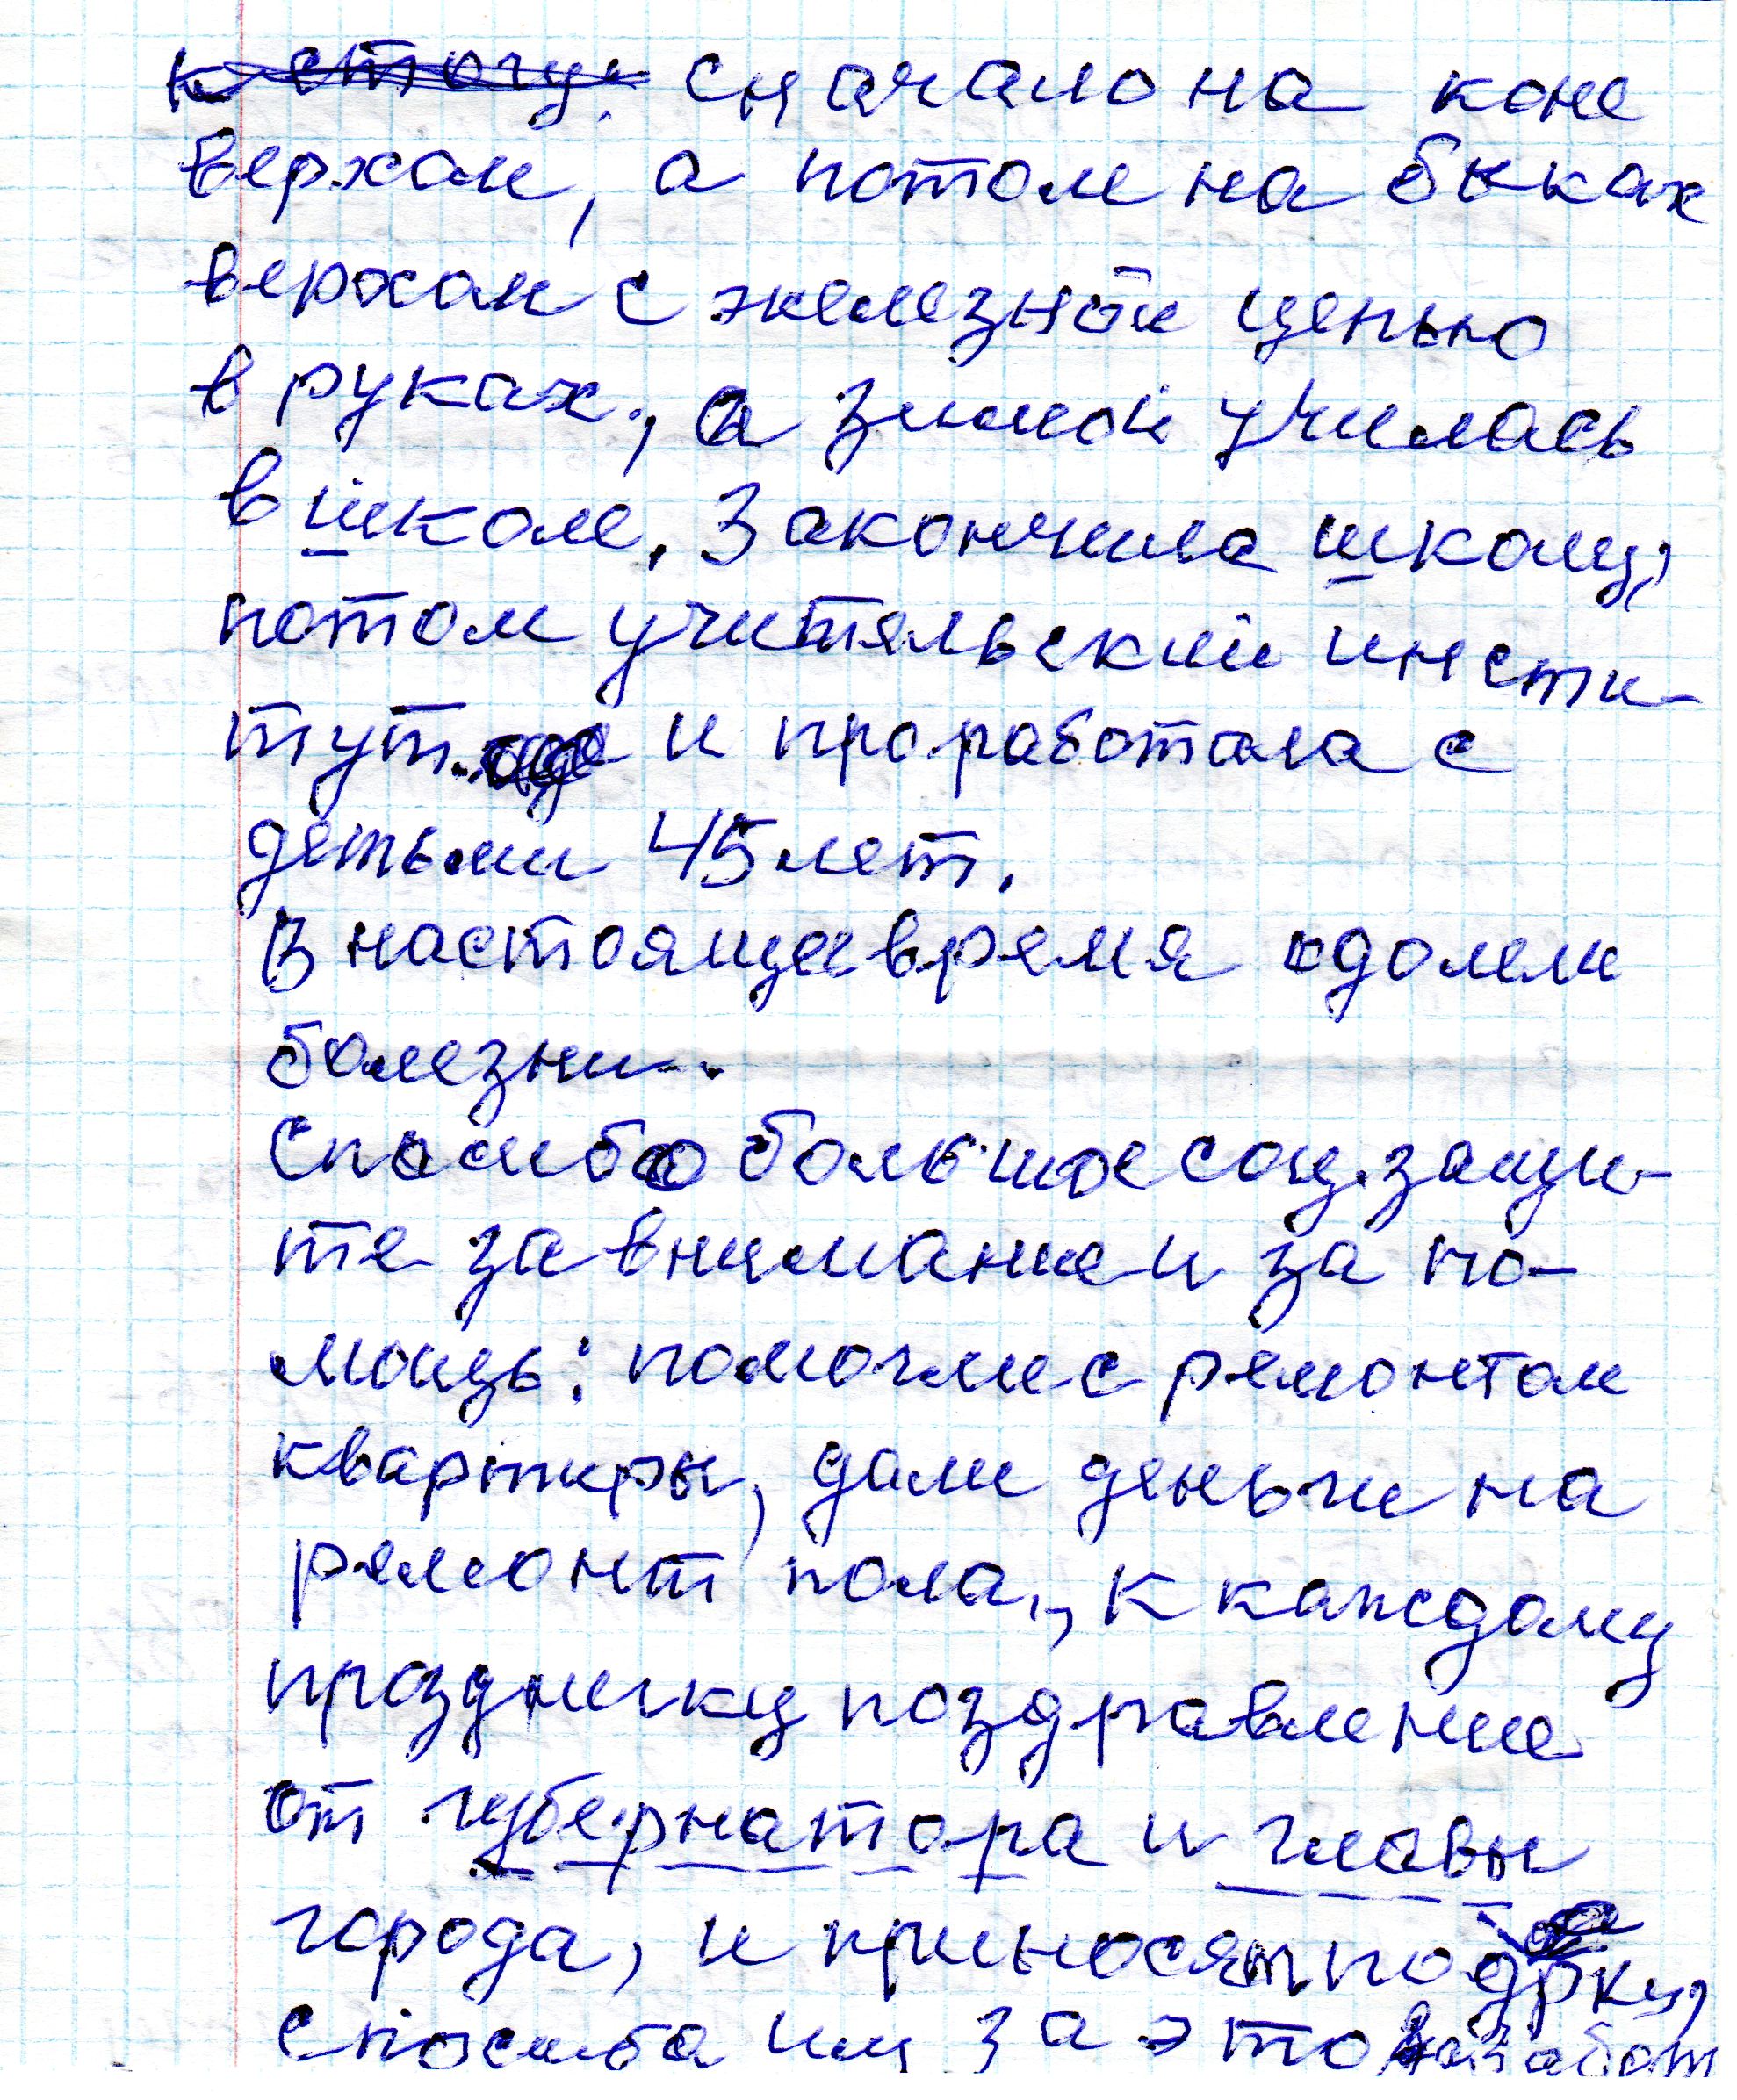 к стогу. сначало на коне
верхом, а потом на быках
верхом с железной цепью
в руках., а зимой училась
в школе. Закончила школу,
потом учительский инсти-
тут. и проработала с
детьми 45 лет.
В настоящее время одолели
болезни..
Спасибо большое соц.защи-
те за внимание и за по-
мощь: помогли с ремонтом
квартиры, дали деньги на
ремонт пола., к каждому
празднику поздравление
от губернатора и главы
города, и приносят подарки,
спосиба им за это